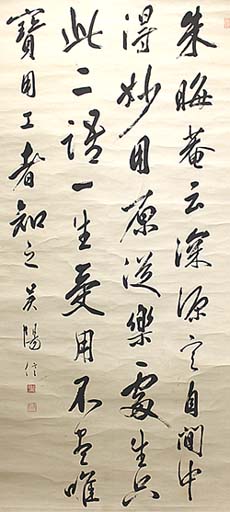 朱晦菴云深源定自閒中
得妙用原從樂處生只
此二語一生受用不盡唯
實用工者知之 吳陽